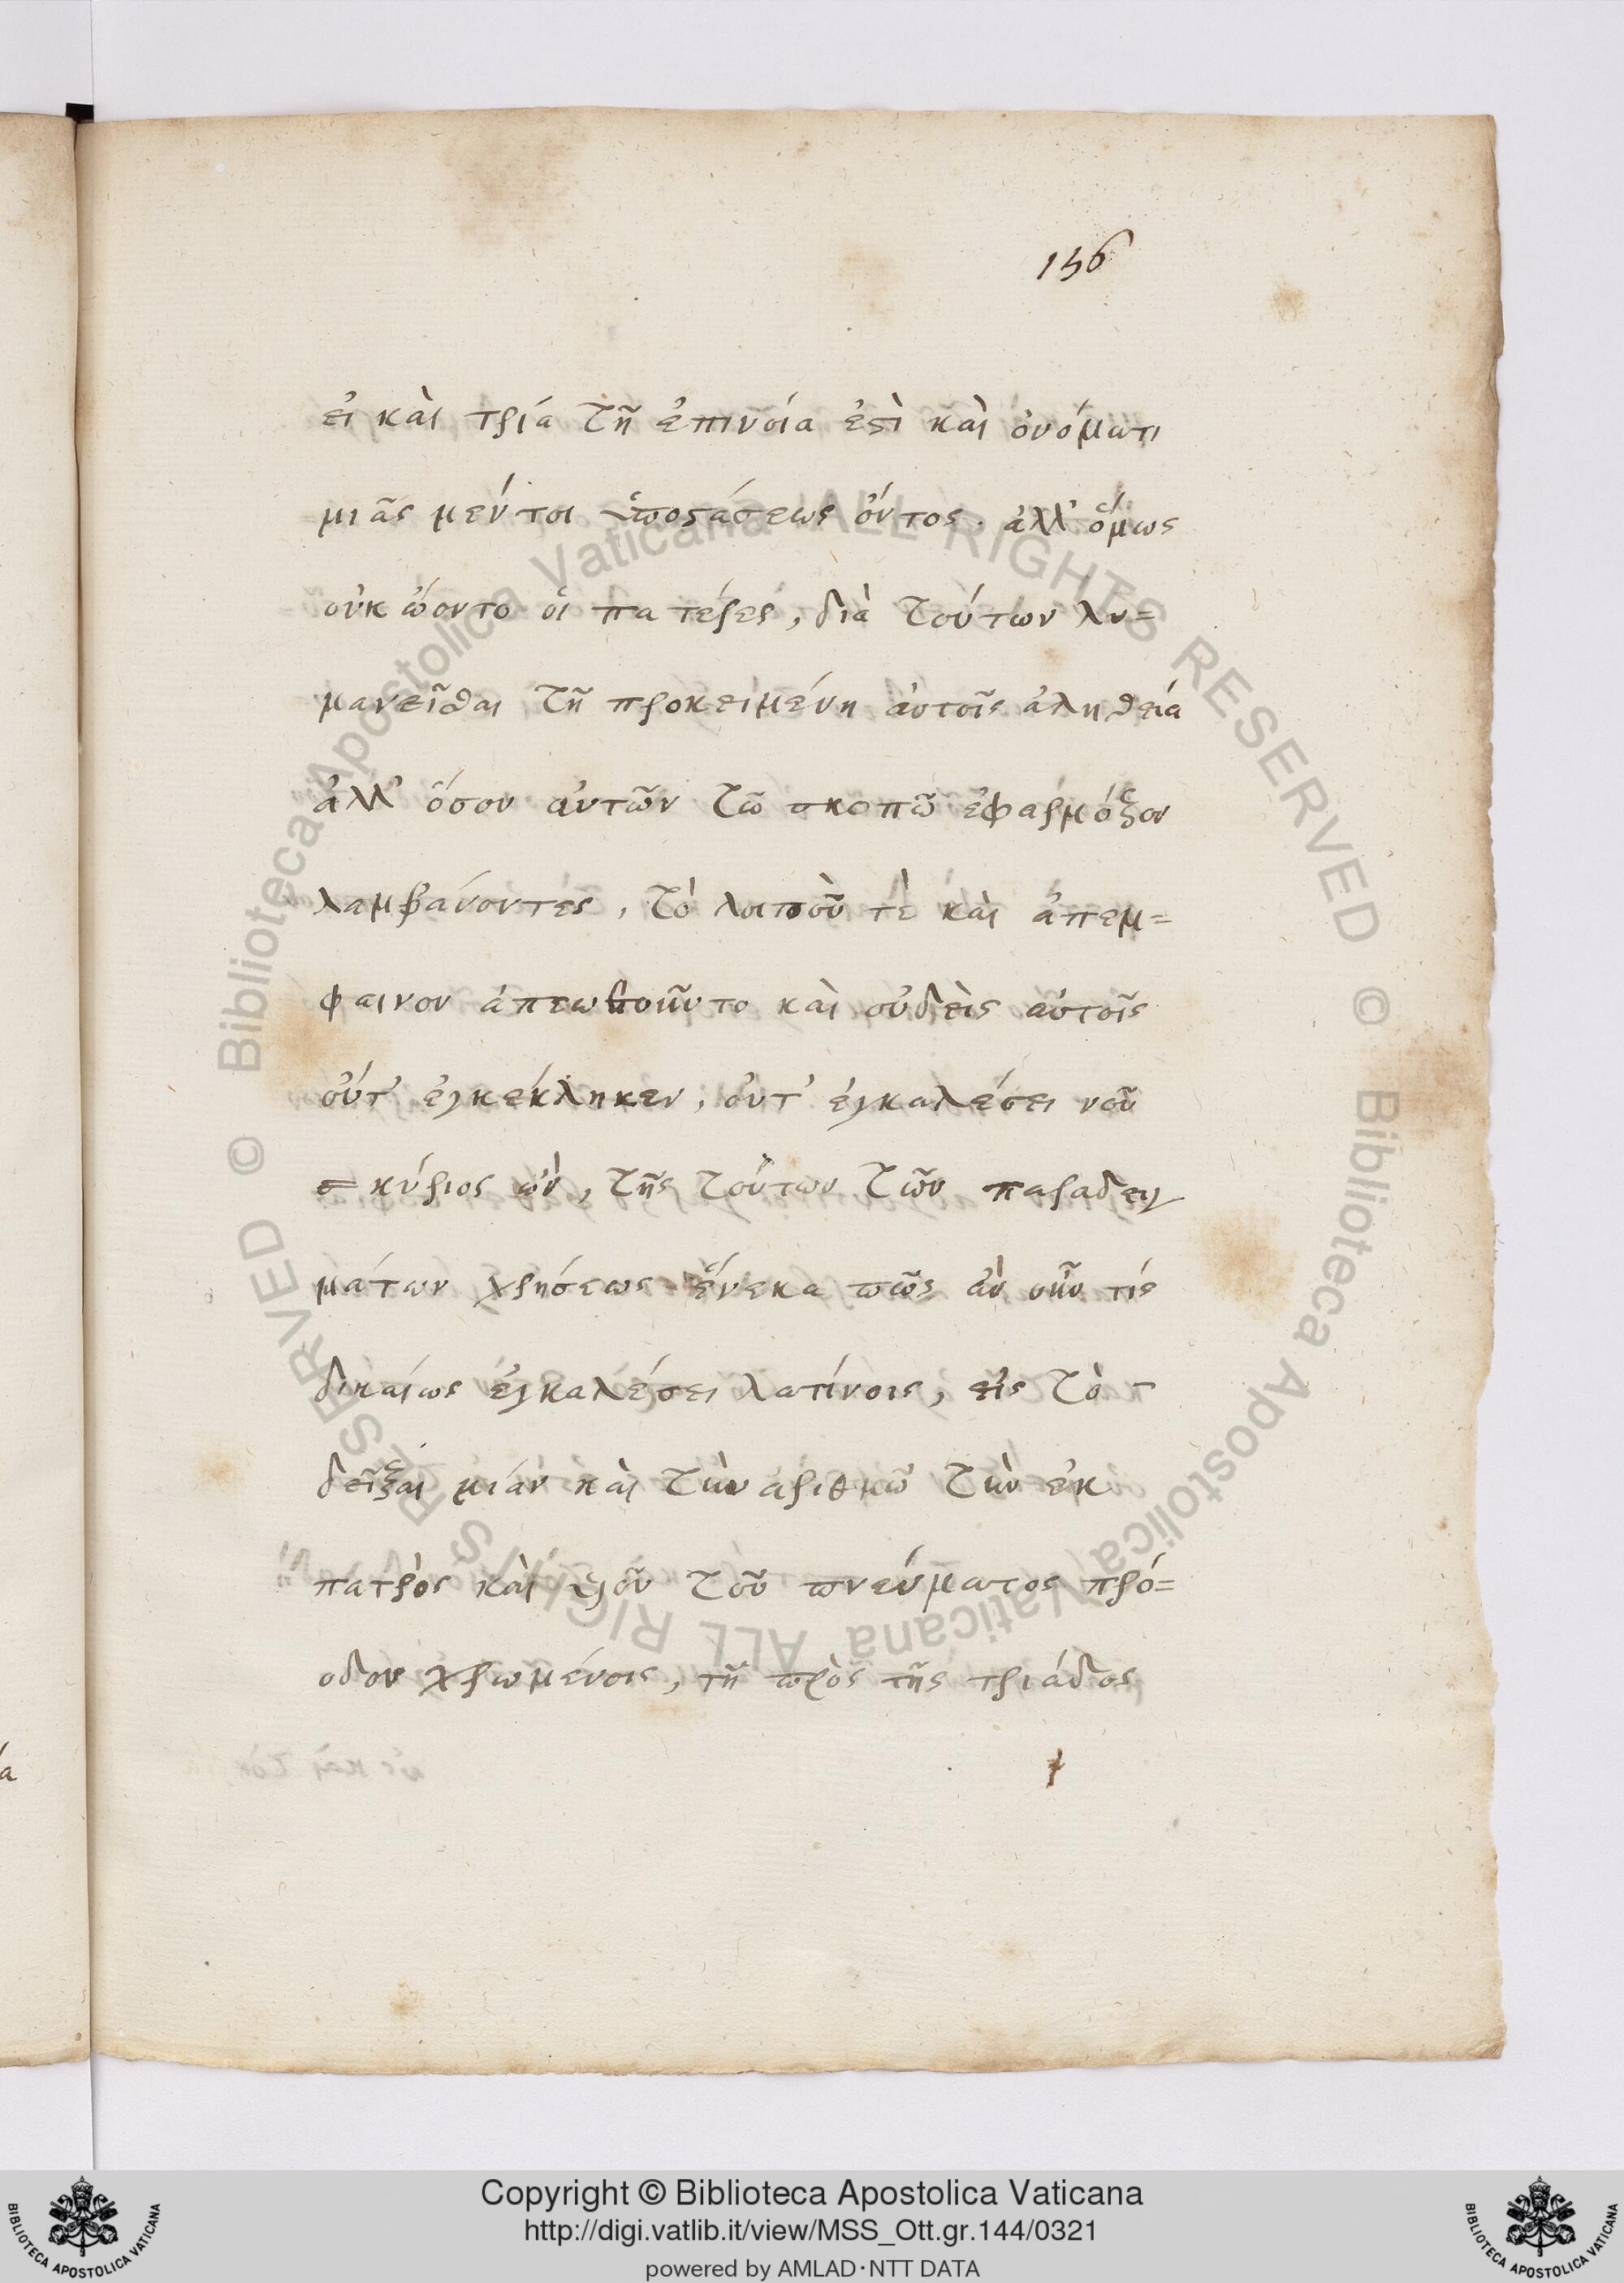 156
εἰ καὶ τρία τῆ ἐπινοία ἐςὶ καὶ ὀνόματι
μιᾶς μέντοι ὑποςάσεως ὄντος. ἀλλ' ὅμως
οὐκ ὤοντο οἱ πατέρες, διὰ τούτων λυ=
μανεῖσθαι τῆ προκειμένη αὐτοῖς ἀληθεία
ἀλλ' ὅσον αὐτῶν τῶ σκοπῶ ἐφαρμόζον
λαμβάνοντες, τὸ λοιποῦ τὲ καὶ ἀπεμ=
φαινον καὶ οὐδεὶς αὐτοῖς
οὔτ' ἐγκέκληκεν, οὔτ' ἐγκαλέσει νοῦ
κύριος ὢν, τῆς τούτων τῶν παραδειγ
μάτων χρήσεως ἕνεκα πῶς ἂν οὖν τίς
δικαίως ἐγκαλέσει λατίνοις, εἰς τὸ
δεῖξαι μίαν καὶ τὴν ἀριθμῶ τὴν ἐκ
πατρὸς καὶ υἱοῦ τοῦ πνεύματος πρό=
οδον χρωμένοις, τῆ πρὸς τῆς τριάδος
© Biblioteca Apostolica Vaticana ALL RIGHTS RESERVED
© Biblioteca Apostolica Vaticana ALL RIGHTS RESERVED
Copyright © Biblioteca Apostolica Vaticana
http://digi.vatlib.it/view/MSS_Ott.gr.144/0321
powered by AMLAD·NTT DATA
BIBLIOTECA APOSTOLICA VATICANA
BIBLIOTECA APOSTOLICA VATICANA